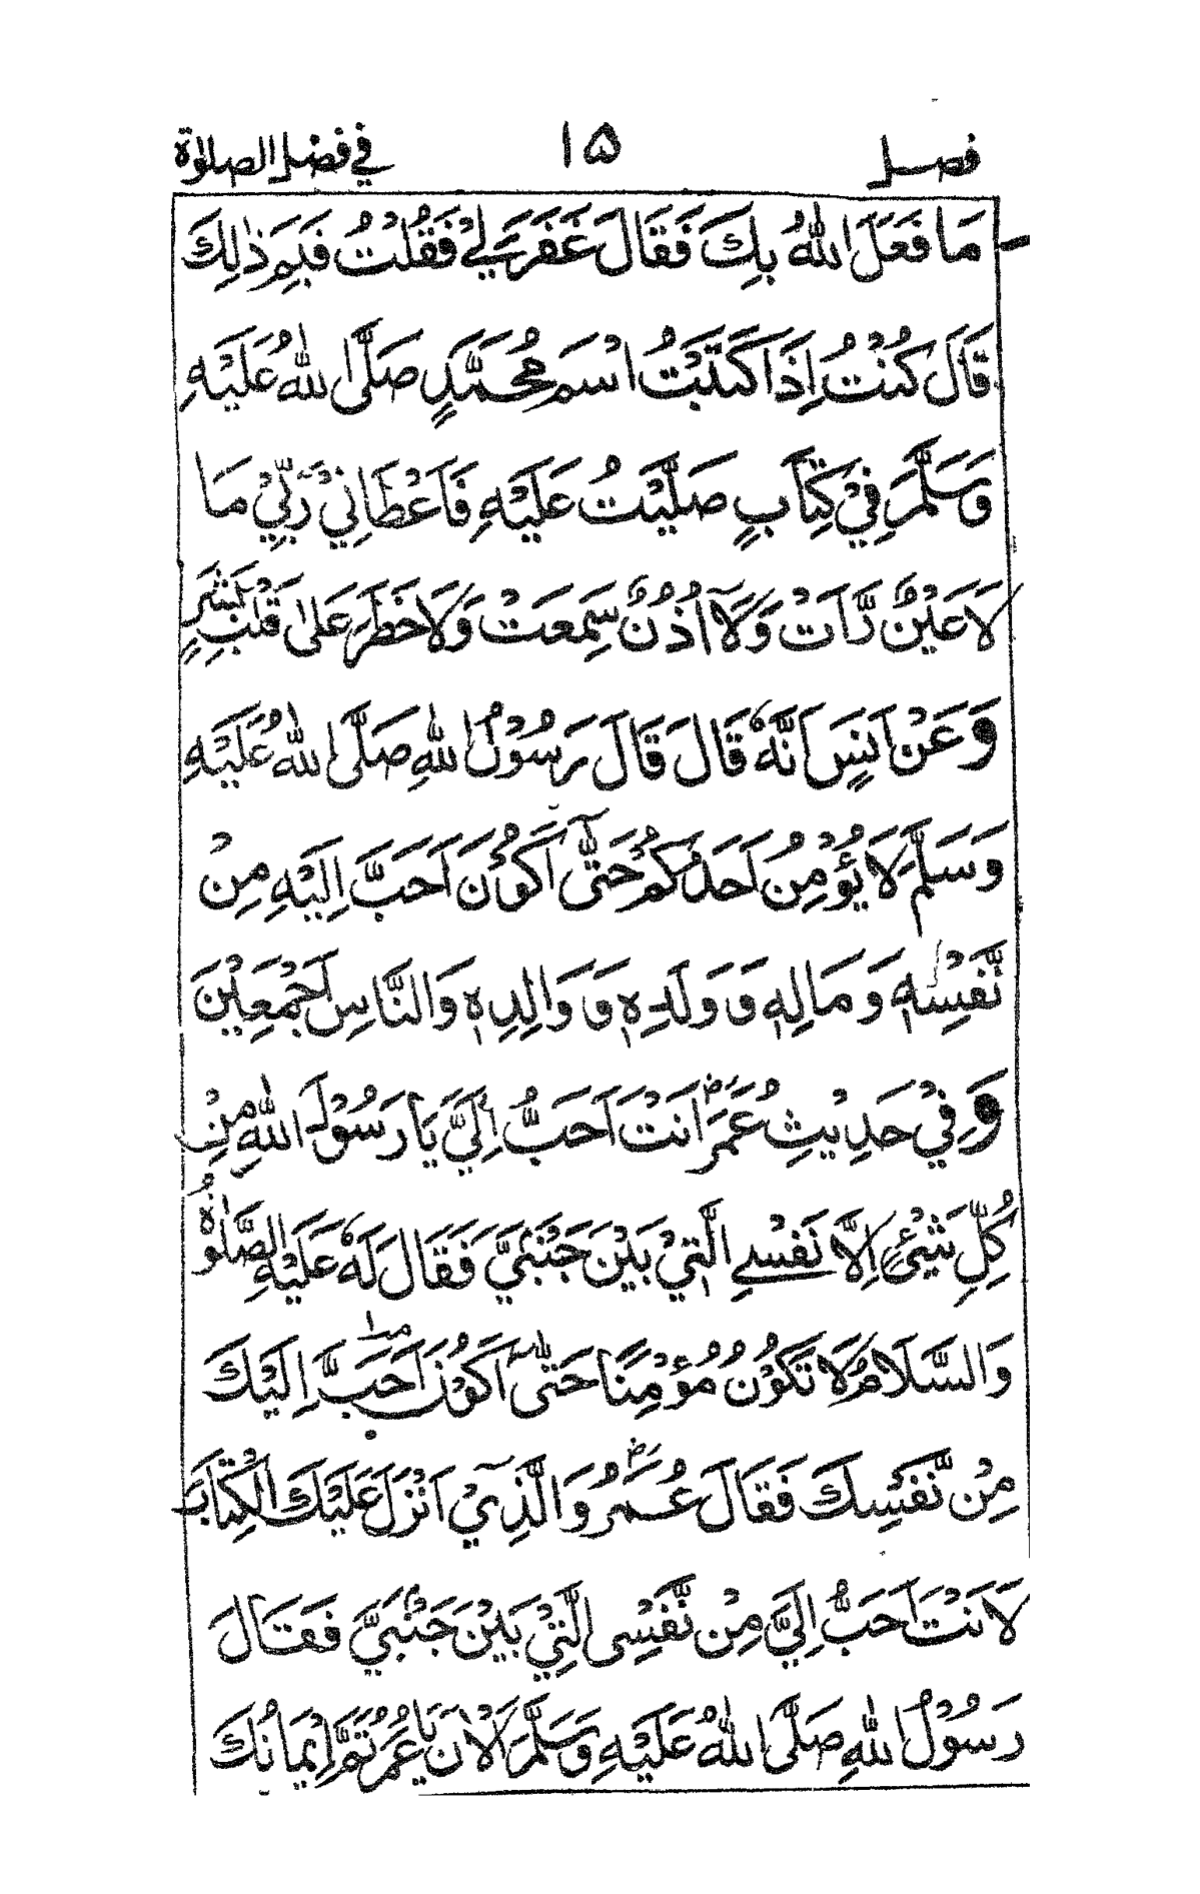 فصل ۱۵ في فضل الصلوٰة
مَا فَعَلَ اللّٰهُ بِكَ فَقَالَ غَفَرَ لِيْ فَقُلْتُ فَبِمَ ذٰلِكَ
قَالَ كُنْتُ اِذَا كَتَبْتُ اسْمَ مُحَمَّدٍ صَلَّى اللّٰهُ عَلَيْهِ
وَسَلَّمَ فِيْ كِتَابٍ صَلَّيْتُ عَلَيْهِ فَاَعْطَانِيْ رَبِّيْ مَا
لَا عَيْنٌ رَّاَتْ وَلَآ اُذُنٌ سَمِعَتْ وَلَا خَطَرَ عَلٰى قَلْبِ بَشَرٍ
وَعَنْ اَنَسٍ اَنَّهٗ قَالَ قَالَ رَسُوْلُ اللّٰهِ صَلَّى اللّٰهُ عَلَيْهِ
وَسَلَّمَ لَا يُؤْمِنُ اَحَدُكُمْ حَتّٰٓى اَكُوْنَ اَحَبَّ اِلَيْهِ مِنْ
نَّفْسِهٖ وَمَالِهٖ وَوَلَدِهٖ وَوَالِدِهٖ وَالنَّاسِ اَجْمَعِيْنَ
وَفِيْ حَدِيْثِ عُمَرَ رض اَنْتَ اَحَبُّ اِلَيَّ يَا رَسُوْلَ اللّٰهِ مِنْ
كُلِّ شَيْئٍ اِلَّا نَفْسِيْ الَّتِيْ بَيْنَ جَنْبَيَّ فَقَالَ لَهٗ عَلَيْهِ الصَّلٰوةُ
وَالسَّلَامُ لَا تَكُوْنُ مُؤْمِنًا حَتّٰٓى اَكُوْنَ اَحَبَّ اِلَيْكَ
مِنْ نَّفْسِكَ فَقَالَ عُمَرُ رض وَالَّذِيْٓ اَنْزَلَ عَلَيْكَ الْكِتَابَ
لَاَنْتَ اَحَبُّ اِلَيَّ مِنْ نَّفْسِى الَّتِيْ بَيْنَ جَنْبَيَّ فَقَالَ
رَسُوْلُ اللّٰهِ صَلَّى اللّٰهُ عَلَيْهِ وَسَلَّمَ الْاٰنَ يَا عُمَرُ تَمَّ اِيْمَانُكَ